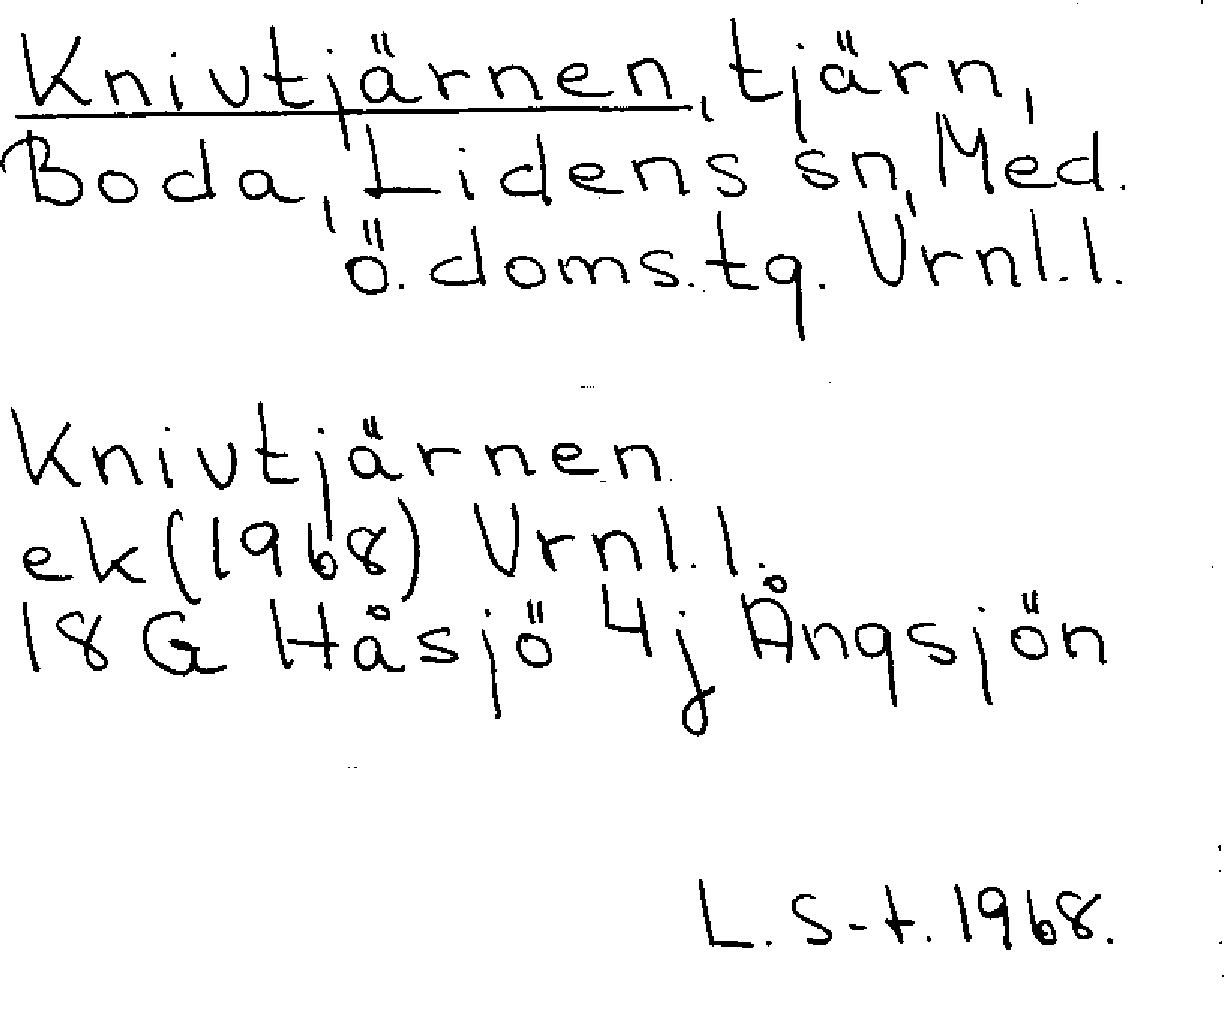 Knivtjärnen, tjärn,
Boda, Lidens sn, Med.
ö. doms. tg. Vrnl. l.
Knivtjärnen
ek (1968) Vrnl. l.
18 G Håsjö 4j Ångsjön
L. S-t. 1968.